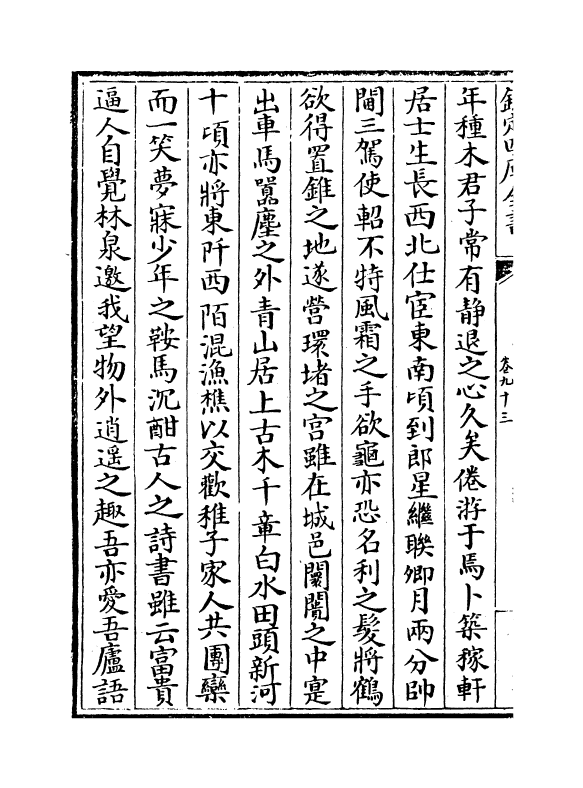 欽定四庫全書
卷九十三
年種木君子常有静退之心久矣倦游于焉卜築稼軒
居士生長西北仕宦東南頃到郎星繼聯卿月兩分帥
閫三駕使軺不特風霜之手欲龜亦恐名利之髮將鶴
欲得置錐之地遂營環堵之宮雖在城邑闤闠之中寔
出車馬嚣塵之外青山居上古木千章白水田頭新河
十頃亦將東阡西陌混漁樵以交歡稚子家人共團欒
而一笑夢寐少年之鞍馬沉酣古人之詩書雖云富貴
逼人自覺林泉邀我望物外逍遥之趣吾亦愛吾廬語